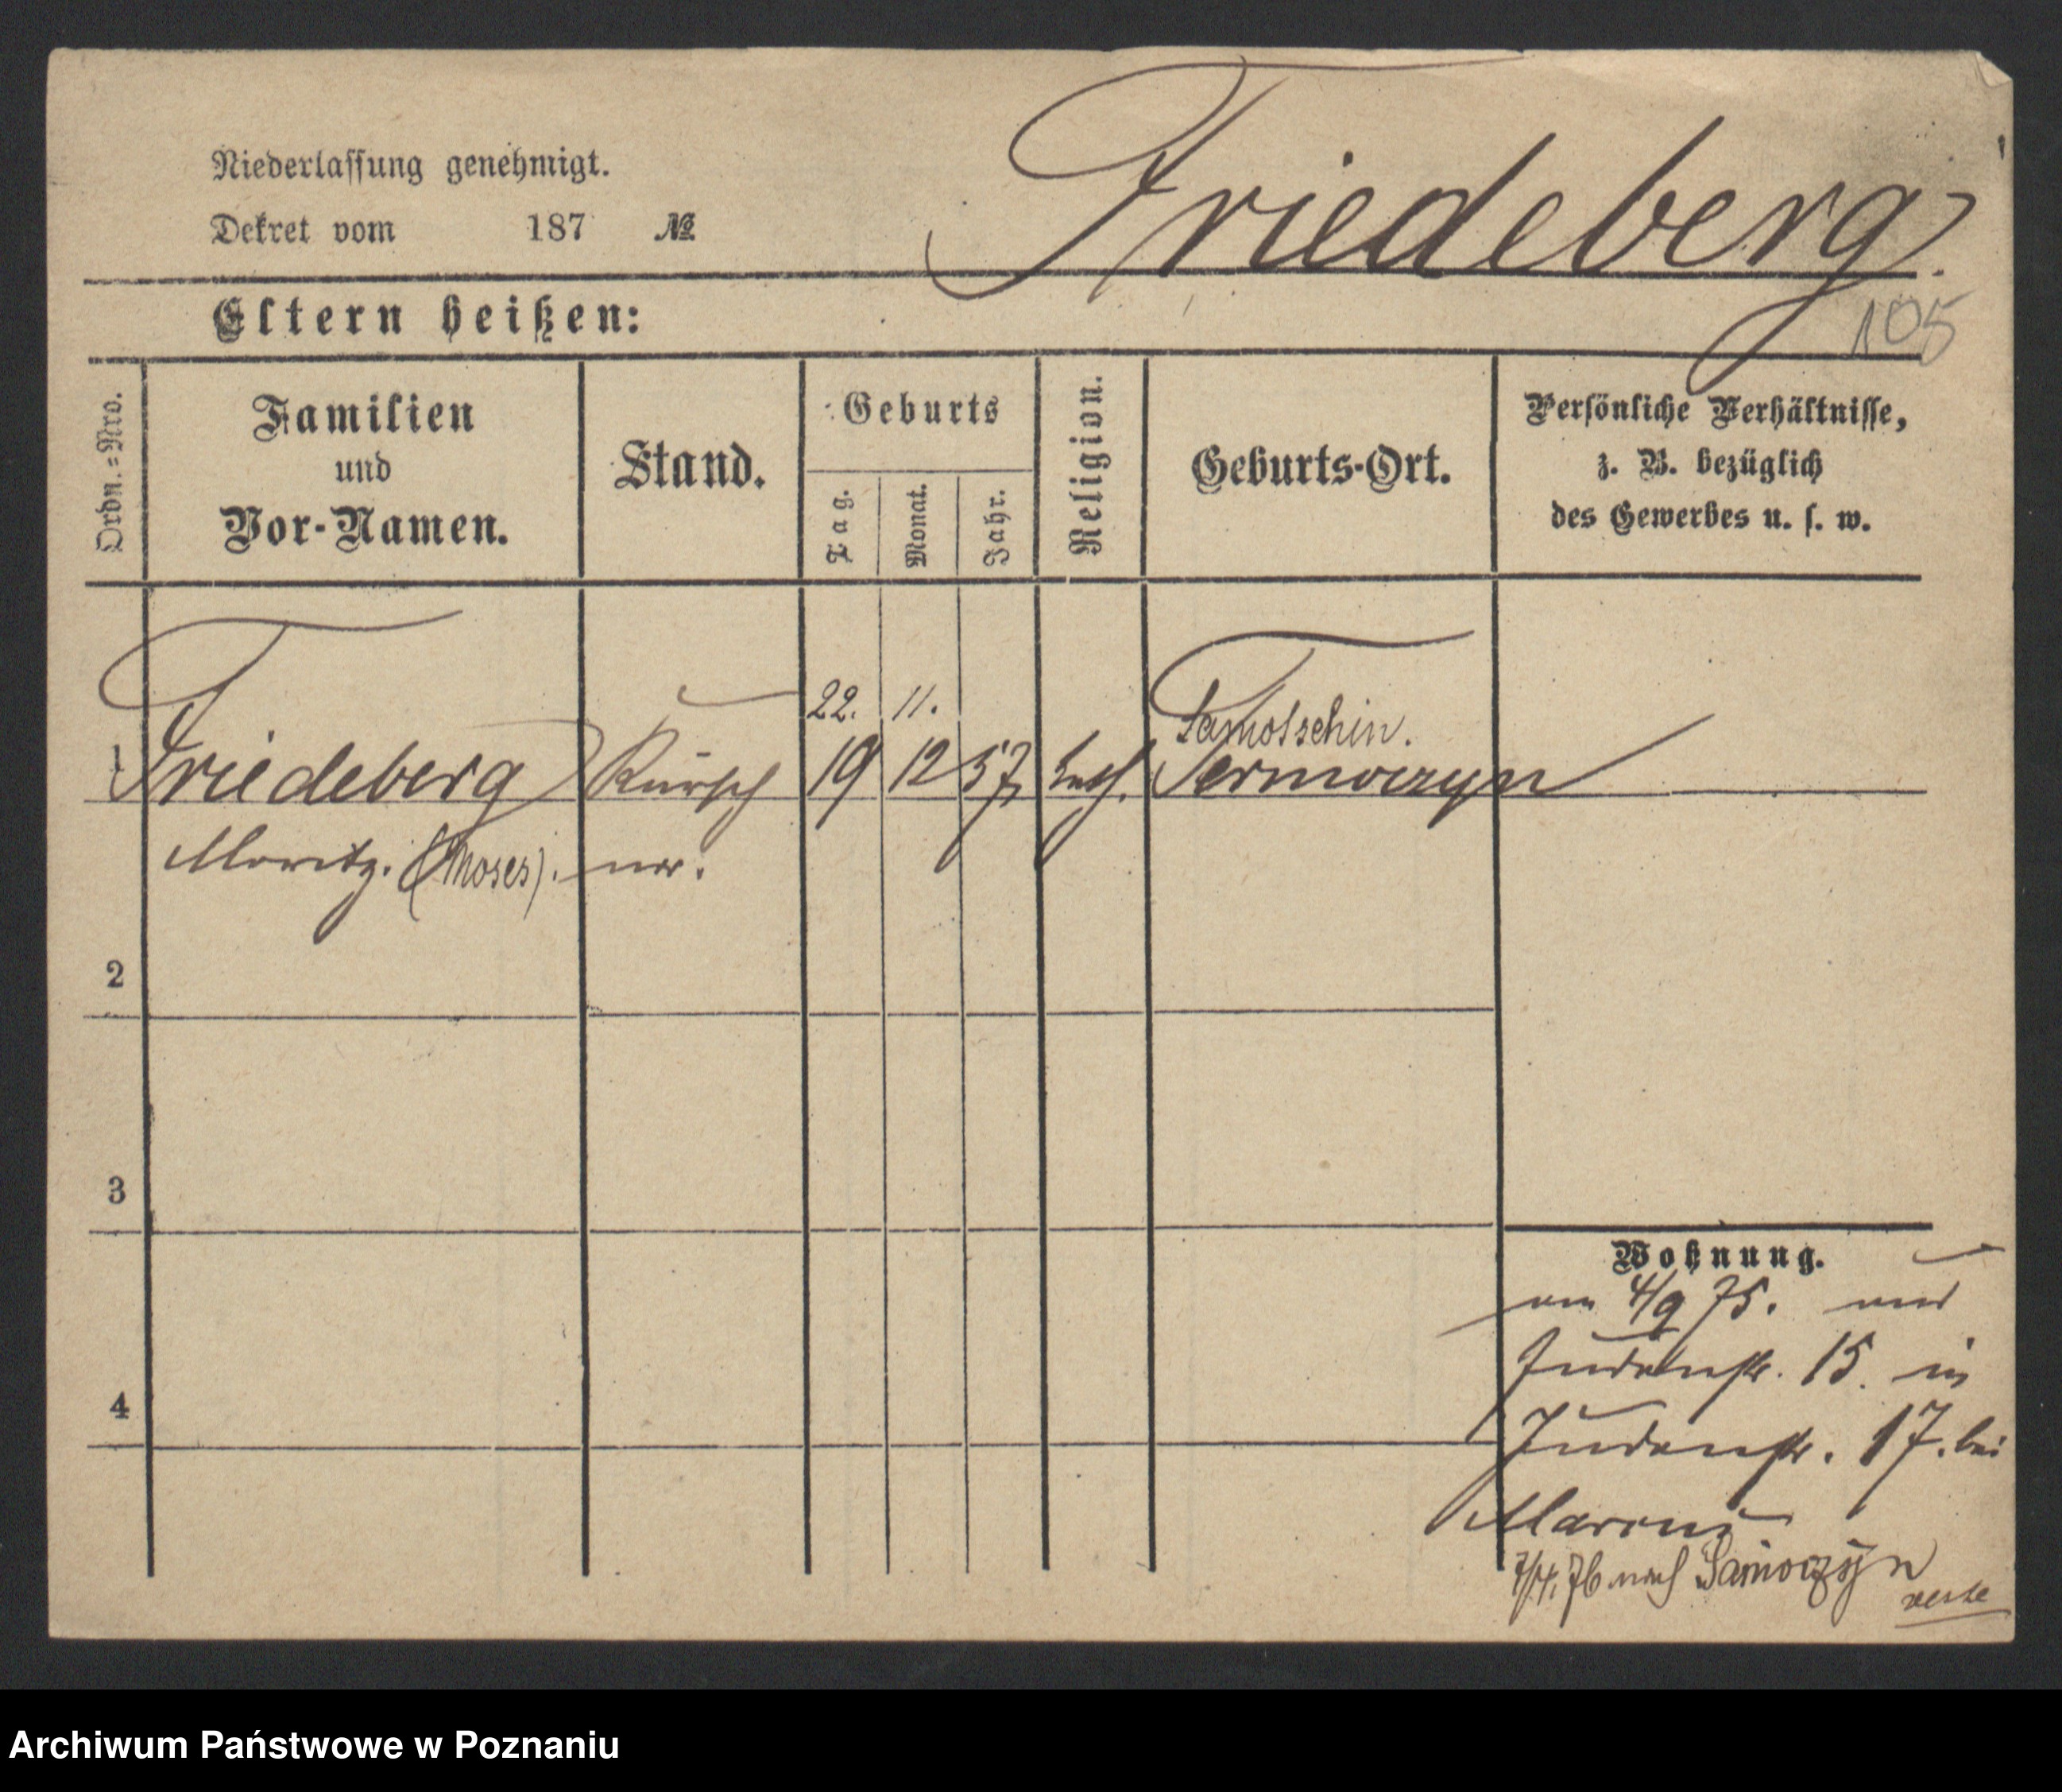 Niederlassung genehmigt.
Dekret vom 187 №
Friedeberg.
105
Eltern heißen:
Ordn.=Nro.
Familien
und
Vor-Namen.
Stand.
Geburts
Tag.
Monat.
Jahr.
Religion.
Geburts-Ort.
Persönliche Verhältnisse,
z. B. bezüglich
des Gewerbes u. s. w.
22. 11. Samotschin.
1 Friedeberg Kürsch 19 12 57
Moritz. (Moses). ner.
2
3
4
Wohnung.
am 4/9 75. und
Judenstr. 15. in
Judenstr. 17. bei
Marcus
7/4. 76 nach Samoczyn
Archiwum Państwowe w Poznaniu